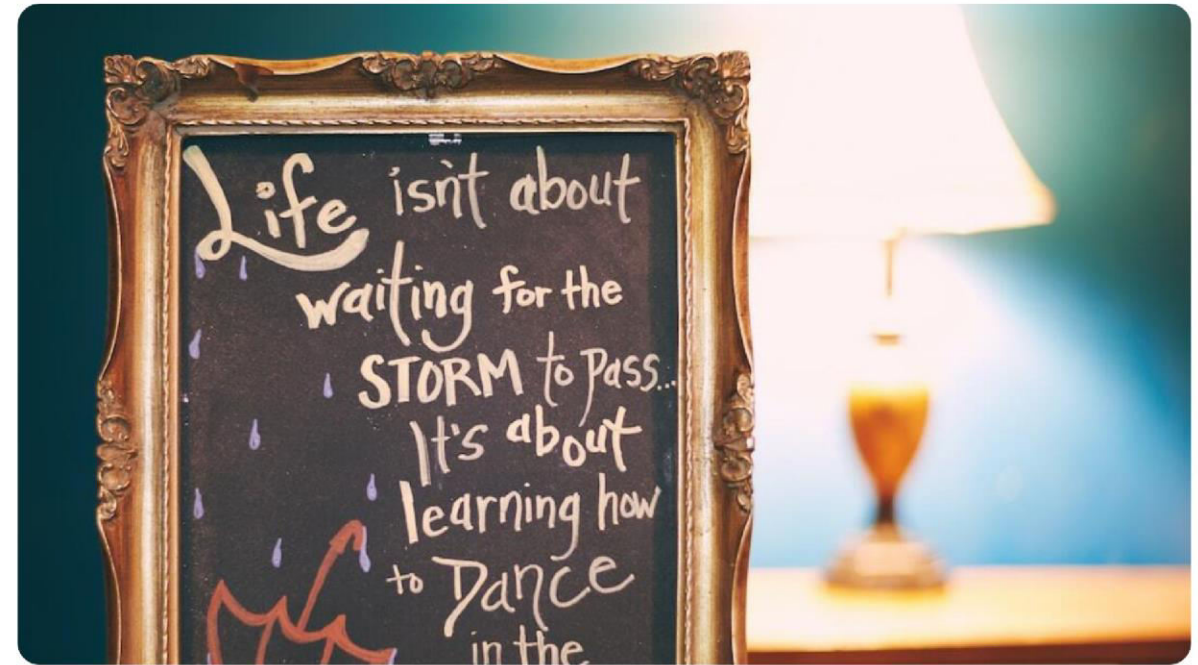 Life isn't about
waiting for the
STORM to pass...
It's about
learning how
to Dance
in the